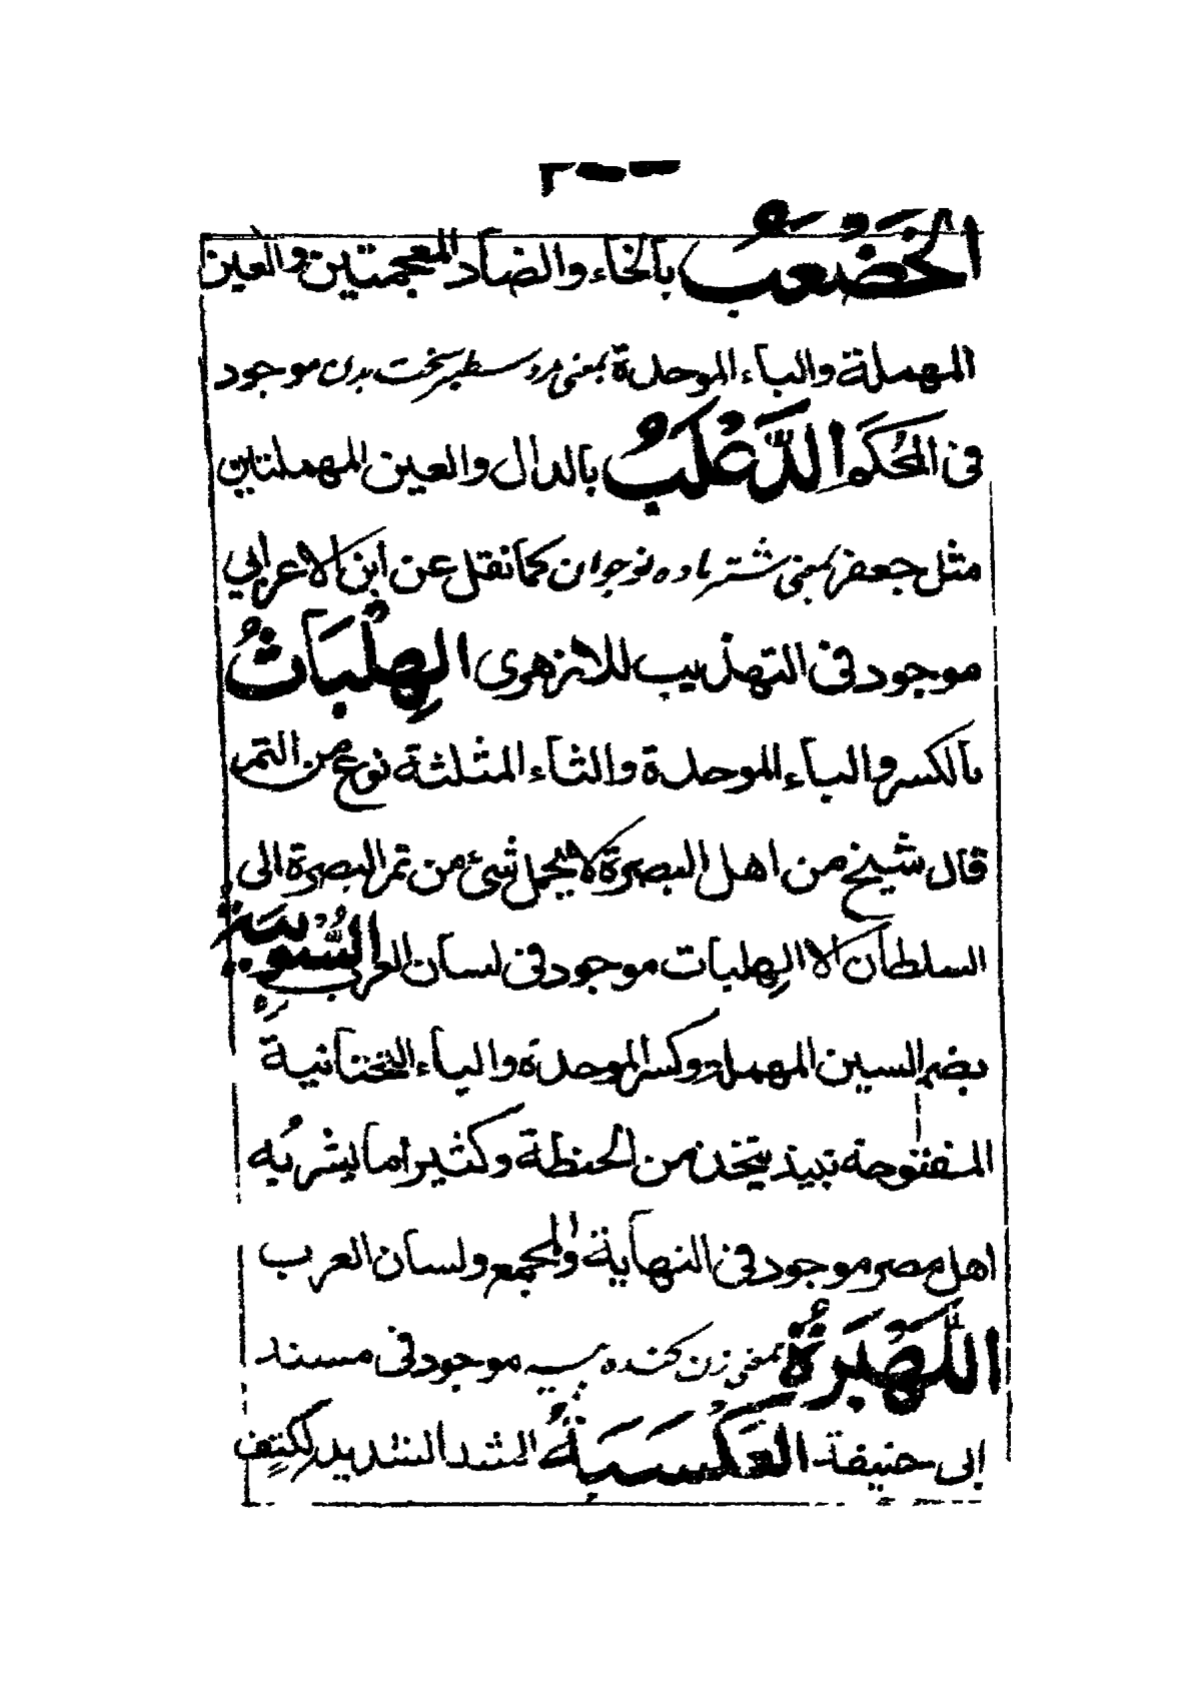 الخَضْعَبُ بالخاء والضاد المعجمتين والعين
المهملة والباء الموحدة بمعنى مرد سطبر سخت بدن موجود
فى المحكم الدَّعْلَبُ بالدال والعين المهملتين
مثل جعفر بمعنى شتر ماده نوجوان كما نقل عن ابن الاعرابي
موجود فى التهذيب للازهرى الهِلْبَاثُ
بالكسر والباء الموحدة والثاء المثلثة نوع من التمر
قال شيخ من اهل البصرة لا يحمل شئ من تمر البصرة الى
السلطان الا الهلبات موجود فى لسان العرب السُّوبِيَةُ
بضم السين المهملة وكسر الموحدة والياء التحتانية
المفتوحة نبيذ يتخذ من الحنطة وكثيرا ما يشربُه
اهل مصر موجود فى النهاية والمجمع ولسان العرب
اللَهْبَرَةُ بمعنى زن كنده پير موجود فى مسند
ابى حنيفة العَكْسَبَةُ الشد الشديد لكتِف